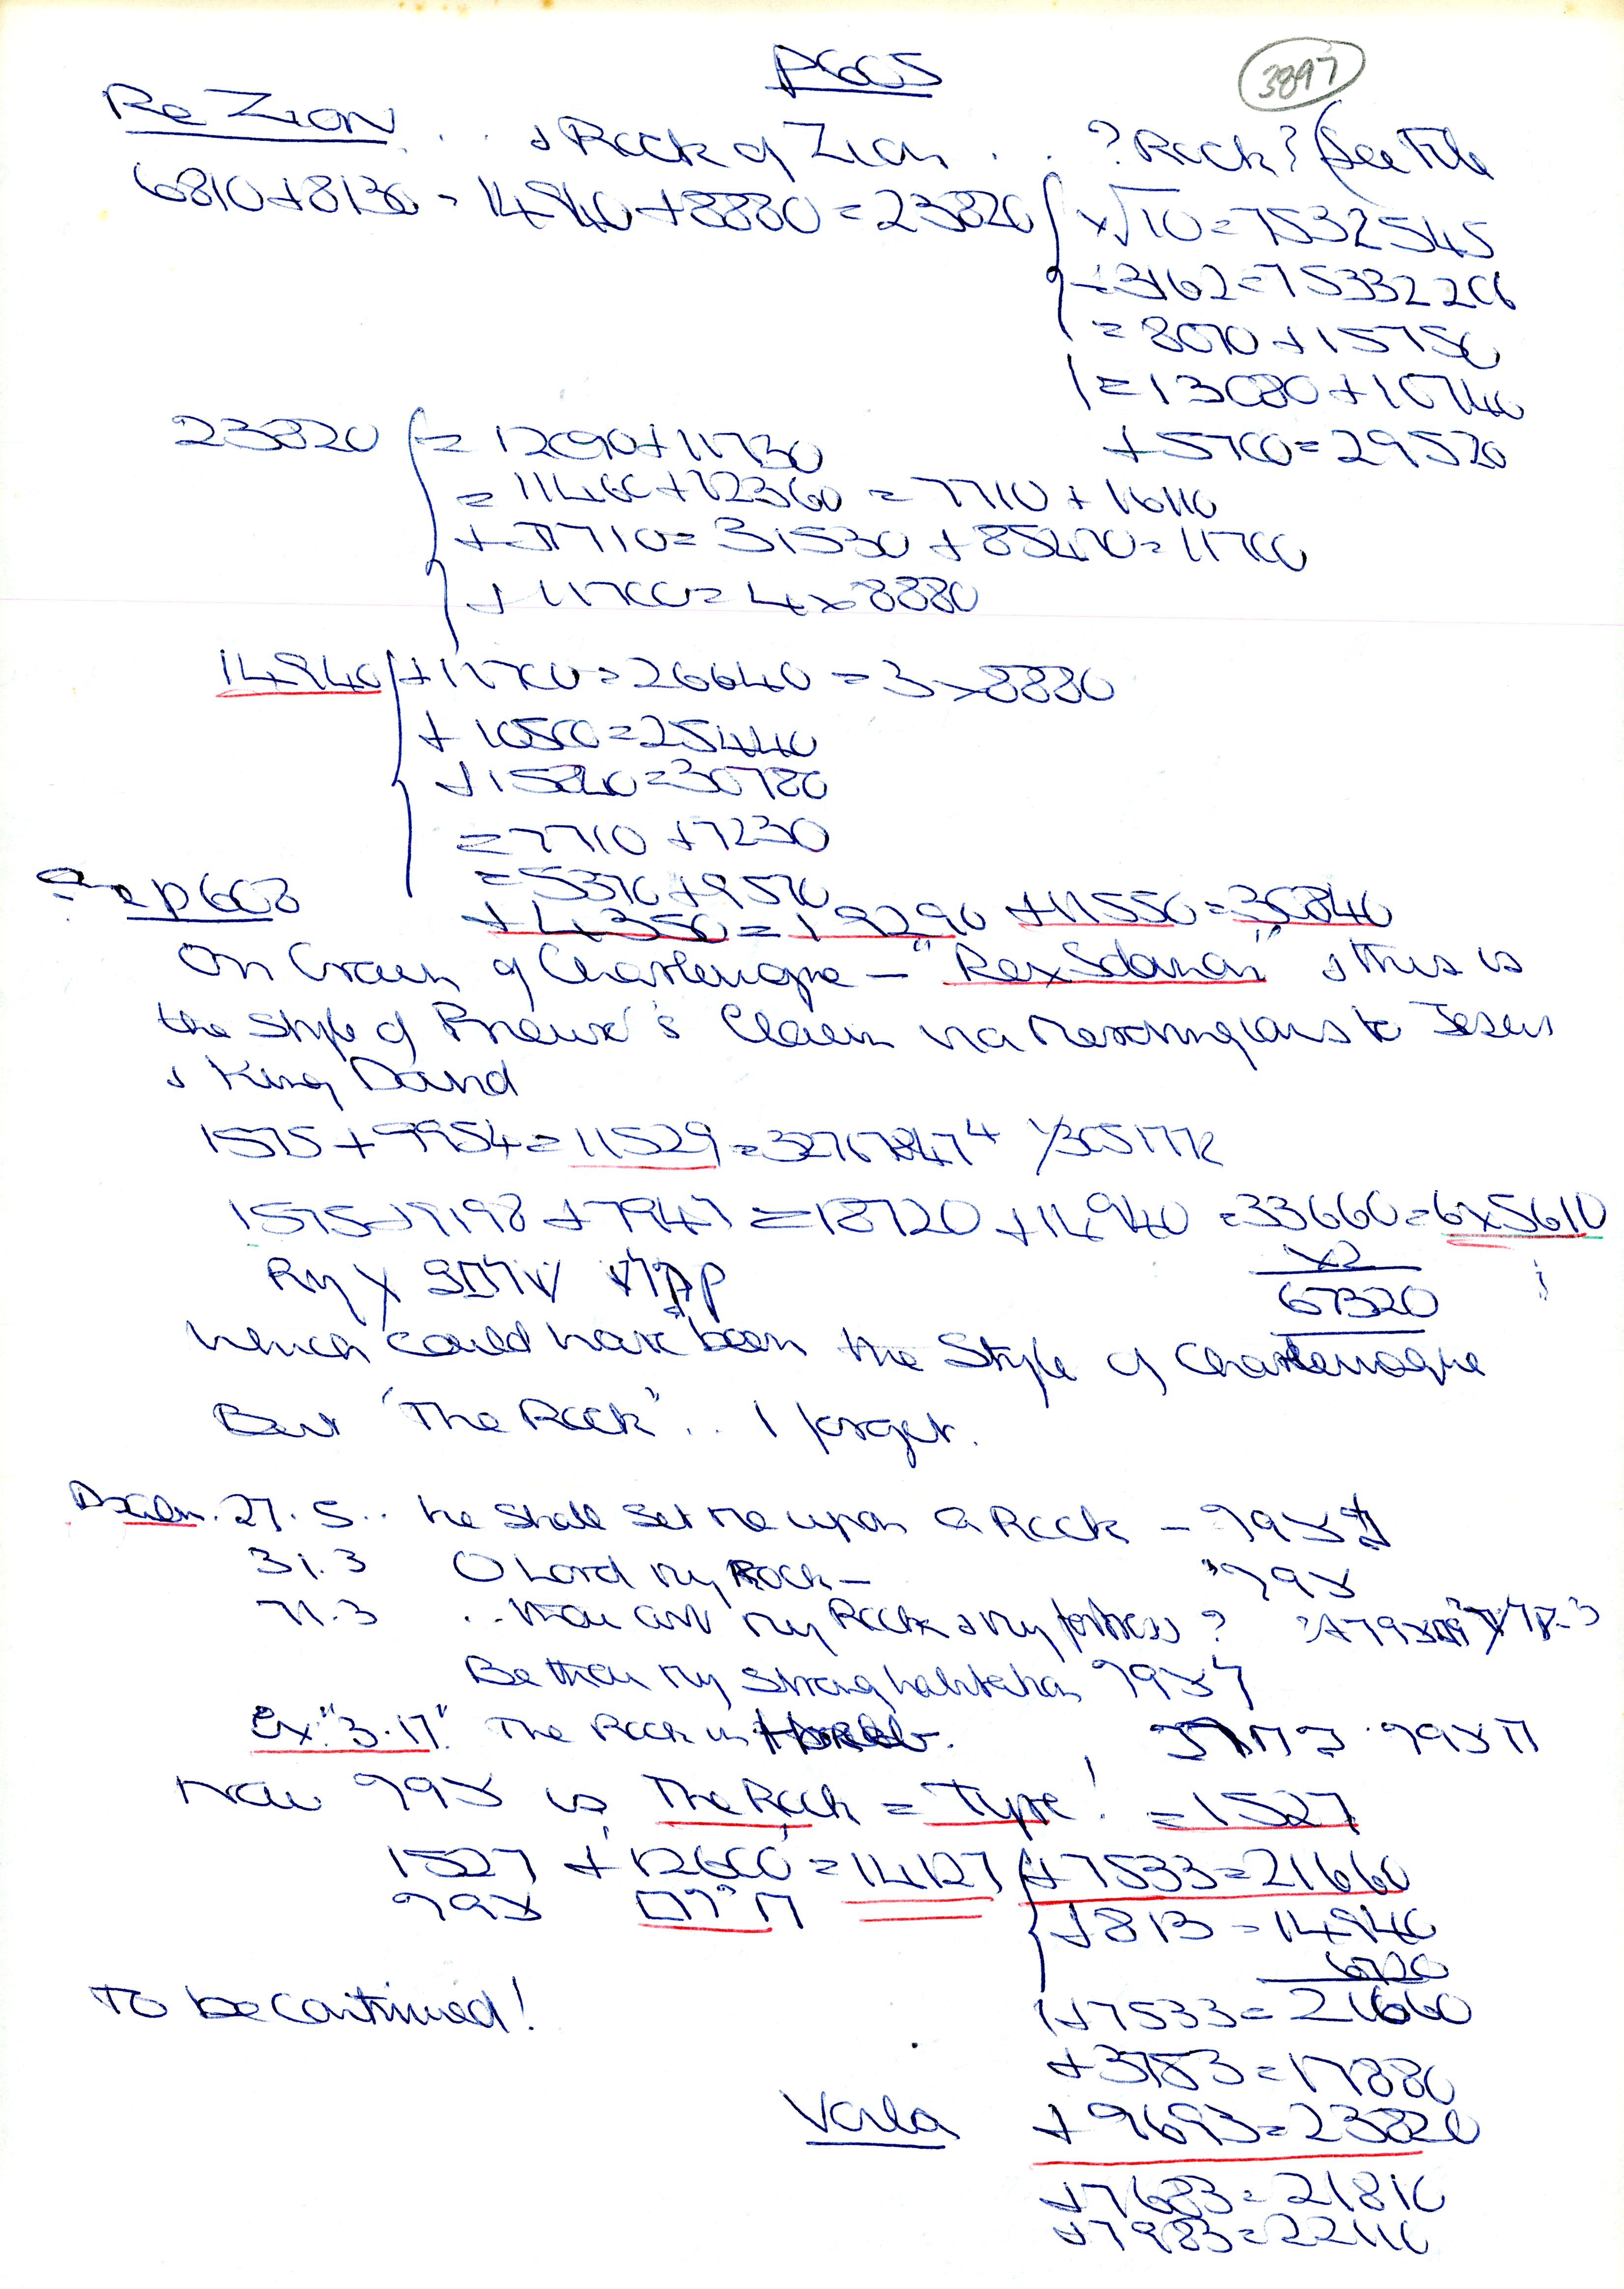 P605
3897
Re Zion . . . & Rock of Zion . . . ? Rock? (See File
6810+8130 = 14940+8880 = 23820
×√10=7532545
÷3162=75332206
= 8070+15750
= 13080+10740
+5700=29520
23820 = 12090+11730
= 11460+12360 = 7710+16110
+7710=31530 + 85470=11700
+11700= 4×8880
14940 +11700=26640 = 3×8880
+10500=25440
+15840=30780
=7710+7230
=5370+9570
+4350=19290 +11550=30840
Re p603
On Crown of Charlemagne — "Rex Salomon" & this is
the style of Prieure's Claim via Merovingians to Jesus
& King David
1575+9954=11529=32767847⁴
1575+9198+7947=18720+14940=33660=6×5610
×2
67320
which could have been the Style of Charlemagne
But 'The Rock".. I forget.
Psalm. 27.5.. he shall set me upon a Rock —
31.3 O Lord my Rock —
71.3 .. thou art my Rock & my fortress?
Be thou my strong habitation
Ex."3.17." The Rock in Horeb.
Now צור is The Rock = Tyre! =1527
1527 + 12600 = 14127 +7533=21660
צור
+813=14940
6720
+7533=21660
To be continued!
+3753=17880
Voila +9693=23820
+7683=21810
+7983=22110